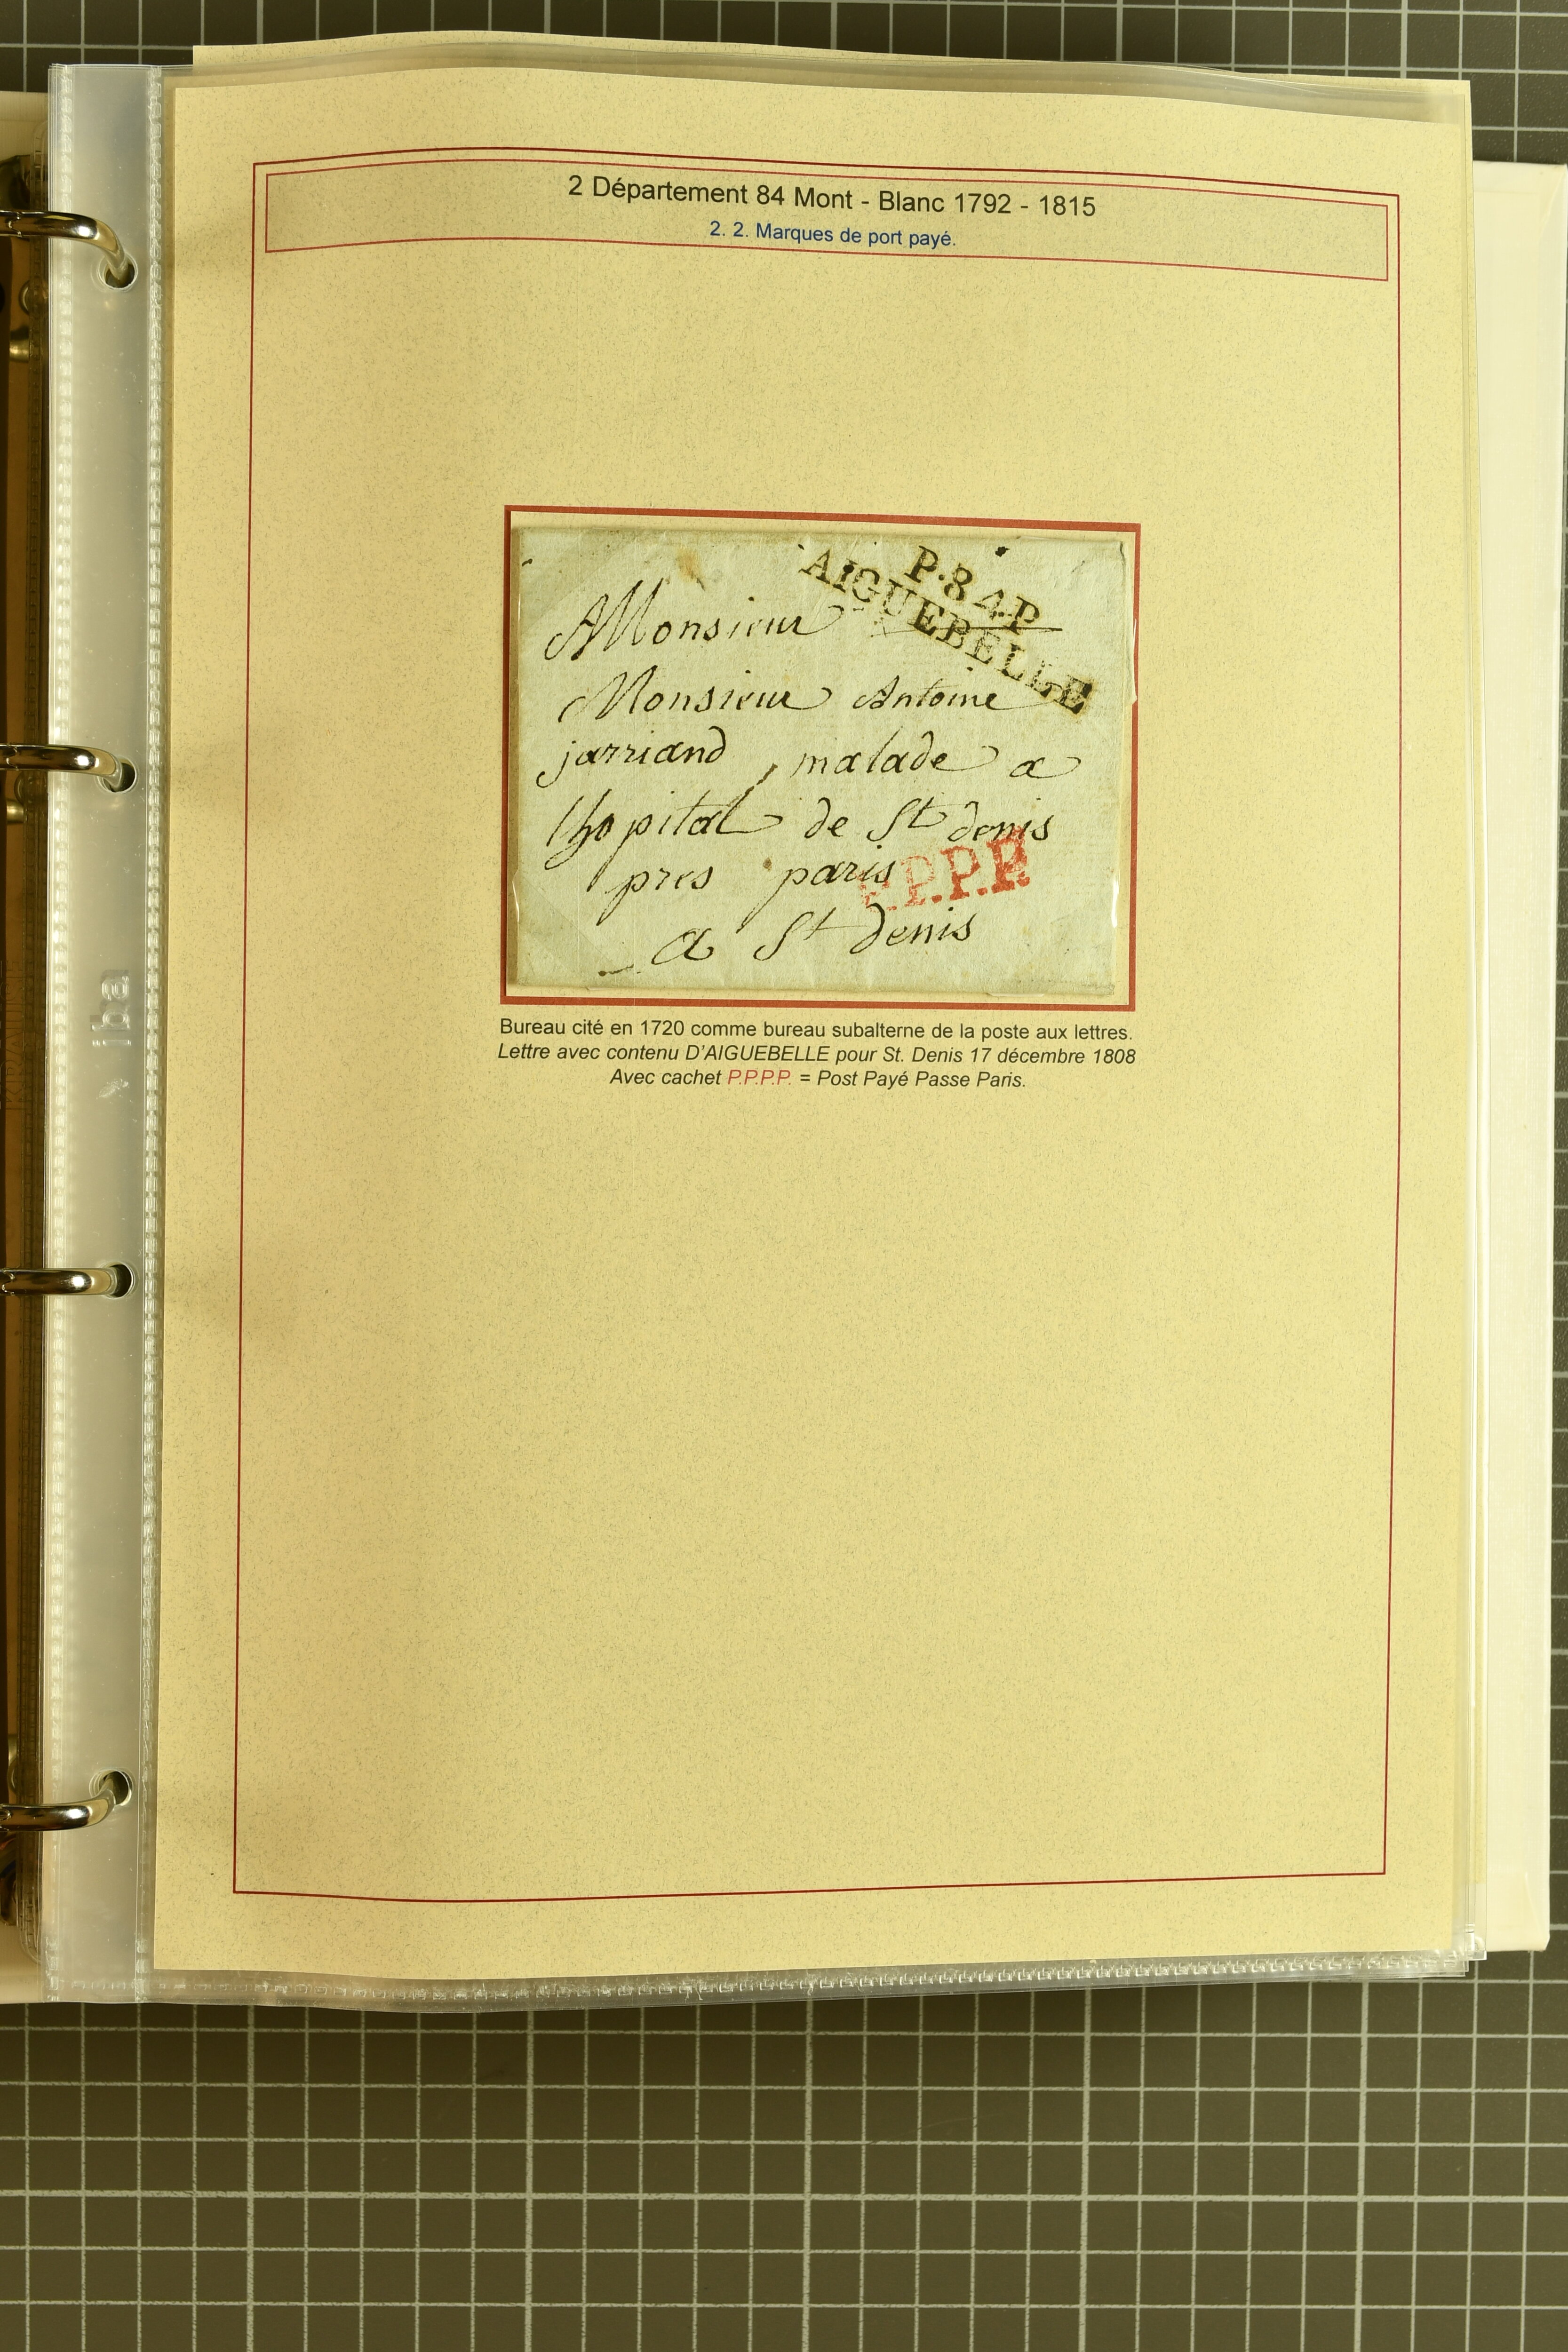 2 Département 84 Mont - Blanc 1792 - 1815
2. 2. Marques de port payé.
P.84.P
AIGUEBELLE
AMonsieur
Monsieur Antoine
jarriand malade a
lhopital de St denis
pres paris
P.P.P.P.
a St denis
Bureau cité en 1720 comme bureau subalterne de la poste aux lettres.
Lettre avec contenu D'AIGUEBELLE pour St. Denis 17 décembre 1808
Avec cachet P.P.P.P. = Post Payé Passe Paris.
iba